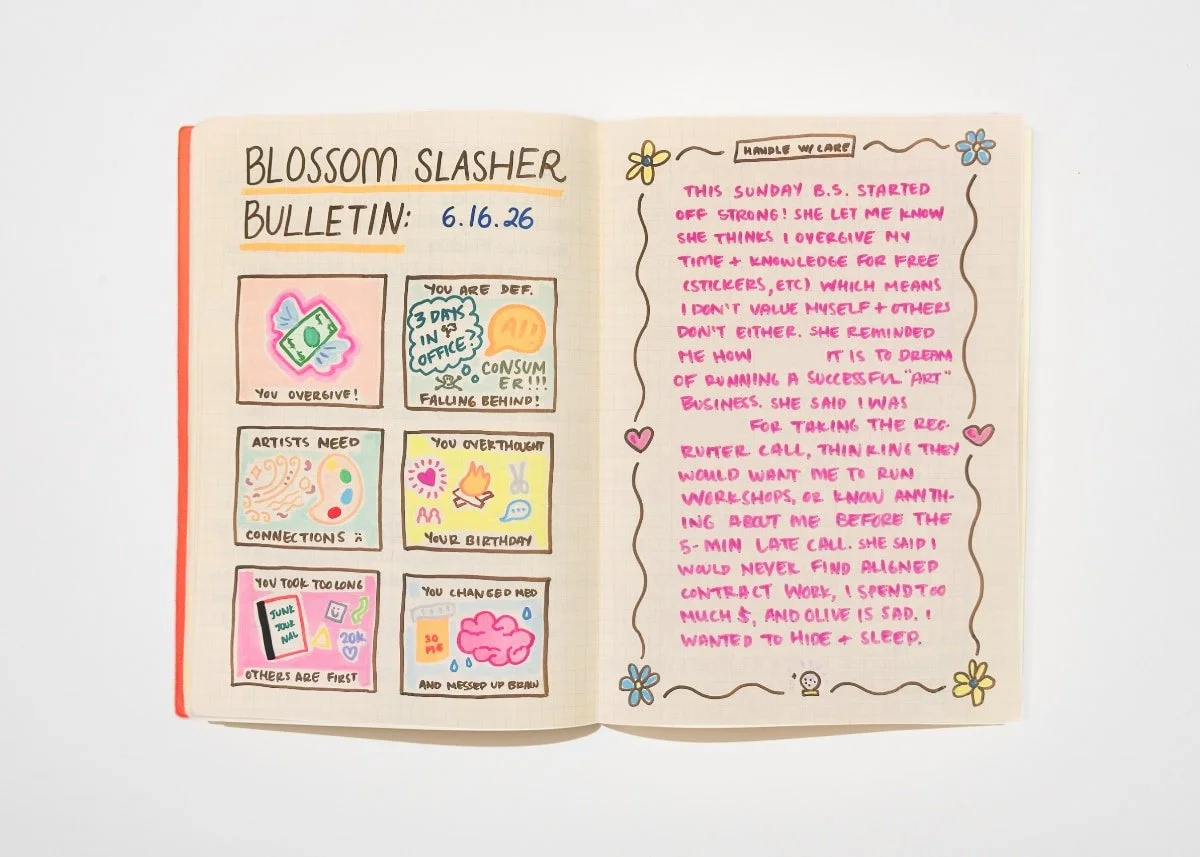 BLOSSOM SLASHER
BULLETIN: 6.16.26
YOU OVERGIVE!
YOU ARE DEF.
3 DAYS
IN
OFFICE?
AI!
CONSUM
ER!!!
FALLING BEHIND!
ARTISTS NEED
CONNECTIONS
YOU OVERTHOUGHT
YOUR BIRTHDAY
YOU TOOK TOO LONG
JUNK
JOUR
NAL
20K
OTHERS ARE FIRST
YOU CHANGED MED
30
MG
AND MESSED UP BRAIN
HANDLE W/ CARE
THIS SUNDAY B.S. STARTED
OFF STRONG! SHE LET ME KNOW
SHE THINKS I OVERGIVE MY
TIME + KNOWLEDGE FOR FREE
(STICKERS, ETC) WHICH MEANS
I DON'T VALUE MYSELF + OTHERS
DON'T EITHER. SHE REMINDED
ME HOW IT IS TO DREAM
OF RUNNING A SUCCESSFUL "ART"
BUSINESS. SHE SAID I WAS
FOR TAKING THE REC-
RUITER CALL, THINKING THEY
WOULD WANT ME TO RUN
WORKSHOPS, OR KNOW ANYTH-
ING ABOUT ME BEFORE THE
5-MIN LATE CALL. SHE SAID I
WOULD NEVER FIND ALIGNED
CONTRACT WORK, I SPEND TOO
MUCH $, AND OLIVE IS SAD. I
WANTED TO HIDE + SLEEP.